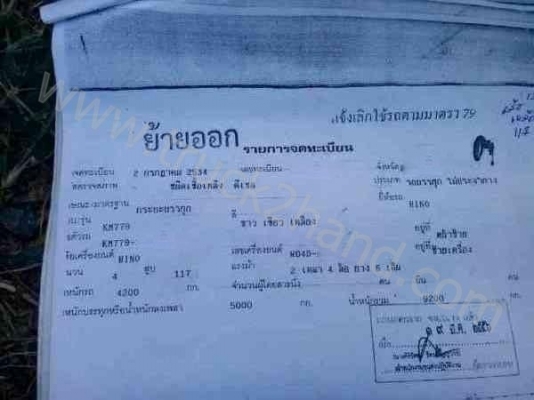 แจ้งเลิกใช้รถตามมาตรา 79
ย้ายออก รายการจดทะเบียน
จดทะเบียน 2 กรกฎาคม 2534 เลขทะเบียน จังหวัด
ตรวจสภาพ ชนิดเชื้อเพลิง ดีเซล ประเภท รถบรรทุก ไม่ประจำทาง
ลักษณะ/มาตรฐาน กระบะบรรทุก สี ขาว เขียว เหลือง ยี่ห้อรถ HINO
รุ่น KM779
ตัวรถ KM779- อยู่ที่ หน้าซ้าย
ยี่ห้อเครื่องยนต์ HINO เลขเครื่องยนต์ W04D- อยู่ที่ ซ้ายเครื่อง
จำนวน 4 สูบ 117 แรงม้า 2 เพลา 4 ล้อ ยาง 6 เส้น
น้ำหนักรถ 4200 กก. จำนวนผู้โดยสารนั่ง คน
น้ำหนักบรรทุกหรือน้ำหนักลงเพลา 5000 กก. น้ำหนักรวม 9200 กก.
๑๙ มี.ค. ๒๕๕๖
www.truck2hand.com